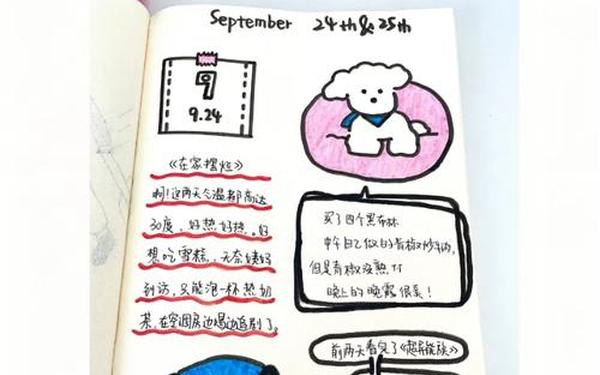 September 24th&25th
9
9.24
《在家摆烂》
啊!这两天气温都高达
30度,好热好热。好
想吃雪糕,无奈姨妈
到访,只能泡一杯热奶
茶,在空调房边喝边追剧了。
买了四个黑布林
中午自己做的青椒炒牛肉,
但是青椒没熟
晚上的晚霞很美!
前两天看完了《超异能族》